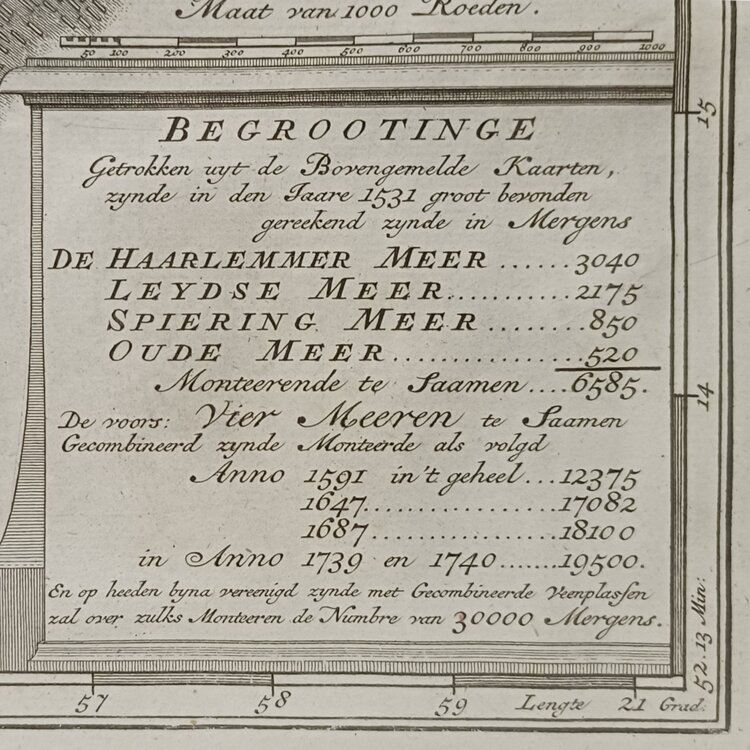 Maat van 1000 Roeden.
50 100 200 300 400 500 600 700 800 900 1000
BEGROOTINGE
Getrokken uyt de Bovengemelde Kaarten,
zynde in den Jaare 1531 groot bevonden
gereekend zynde in Mergens
DE HAARLEMMER MEER ......3040
LEYDSE MEER...........2175
SPIERING MEER........850
OUDE MEER..............520
Monteerende te Saamen....6585.
De voors: Vier Meeren te Saamen
Gecombineerd zynde Monteerde als volgd
Anno 1591 in't geheel...12375
1647..................17082
1687.................18100
in Anno 1739 en 1740......19500.
En op heeden byna vereenigd zynde met Gecombineerde Veenplassen
zal over zulks Monteeren de Numbre van 30000 Mergens.
15
14
52.13 Min:
57 58 59 Lengte 21 Grad.